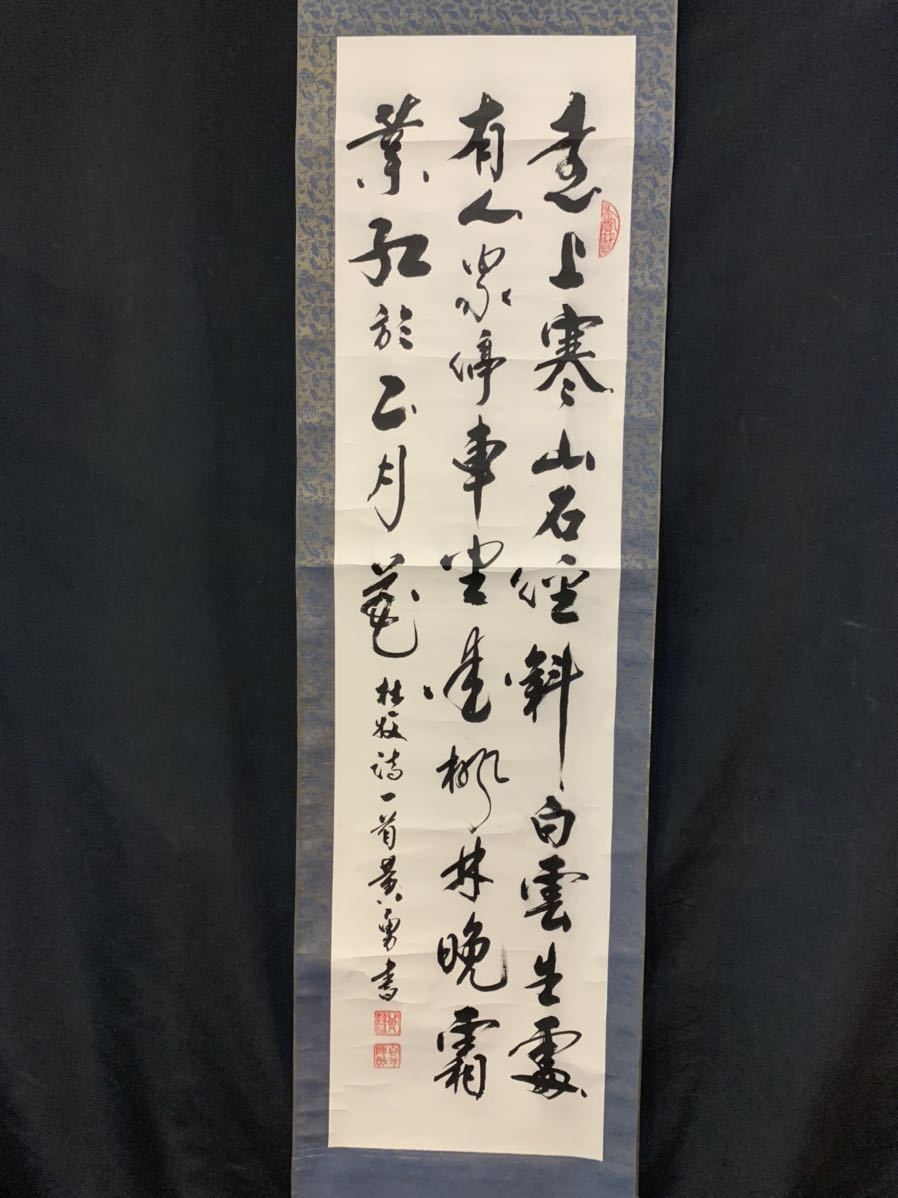 遠上寒山石徑斜白雲生處
有人家停車坐愛楓林晚霜
葉紅於二月花 杜牧詩一首 黄勇書